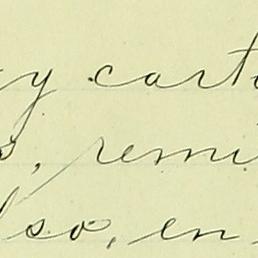 y carto
s, remi
lso, en